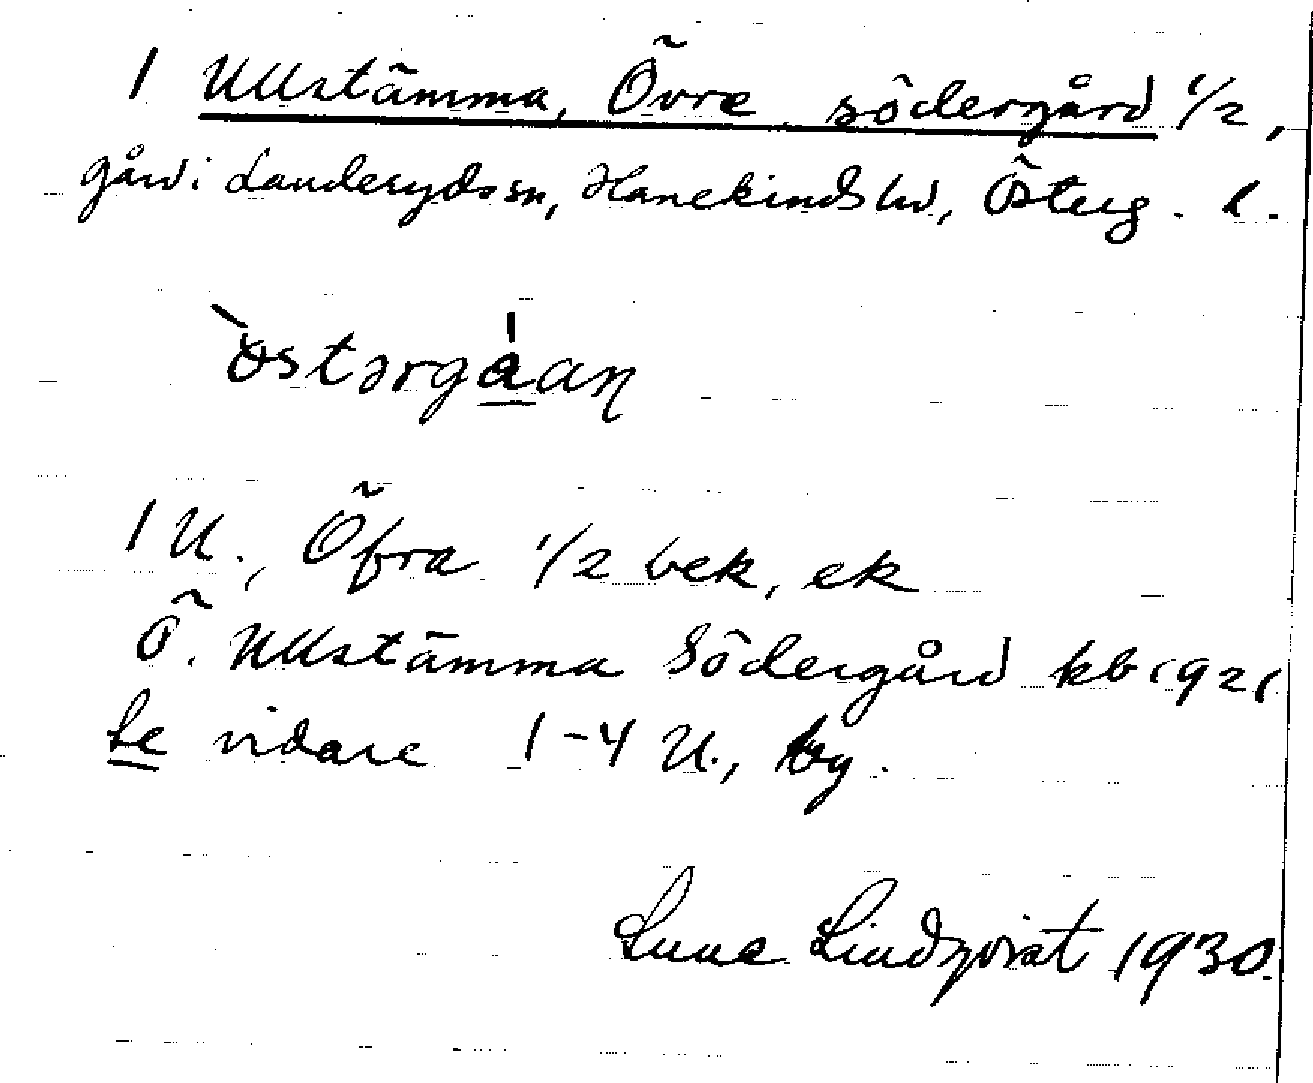 1 Ullstämma, Övre södergård 1/2,
gård i Landerydssn, Hanekinds hd, Österg. l.
òstərgáan
1 U., Öfra 1/2 bek, ek
Ö. Ullstämma Södergård kb 1921
Se vidare 1-4 U., by.
Sune Lindqvist 1930.